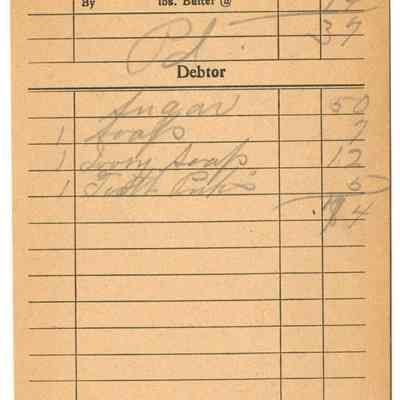 By lbs. Butter @
37
Pd.
Debtor
Sugar 50
1 Soap 7
1 Ivory Soap 12
1 Tooth Picks 5
.74